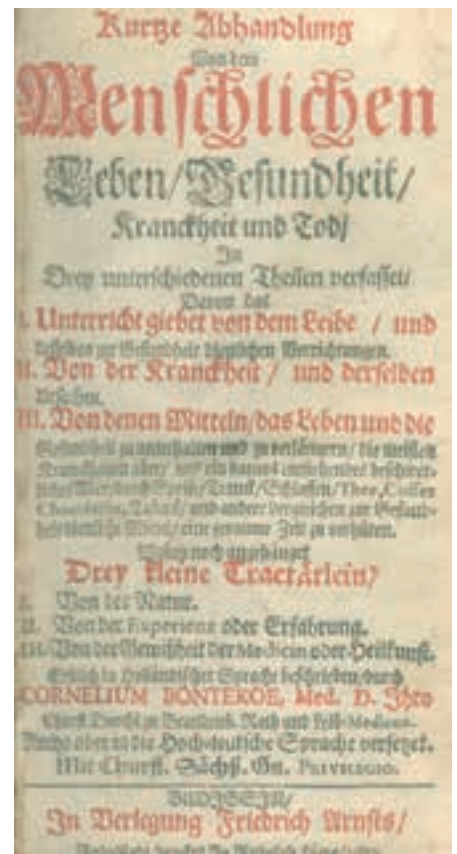 Kurtze Abhandlung
Von dem
Menschlichen
Leben/Gesundheit/
Kranckheit und Tod/
In
Drey unterschiedenen Theilen verfasset/
Davon das
I. Unterricht giebet von dem Leibe / und
desselben zur Gesundheit Verrichtungen.
II. Von der Kranckheit / und derselben
Ursachen.
III. Von denen Mitteln/das Leben und die
Gesundheit zu unterhalten und zu verlängern/ die meisten
Kranckheiten aber/ und ein
Alter/durch Speise/Tranck/Schlaffen/Thee,Coffee
Chocolate, Taback/ und andere dergleichen zur Gesund-
heit eine geraume Zeit zu verhüten.
noch angehänget
Drey kleine Tractätlein/
I. Von der Natur.
II. Von der Experienz oder Erfahrung.
III. Von der Gewißheit der Medicin oder Heilkunst.
Erstlich in Holländischer Sprache beschrieben/durch
CORNELIUM BONTEKOE, Med. D. Ihro
Churfl. Durchl. zu Brandenb. Rath und Leib-Medicum.
aber in die Hoch-teutsche Sprache versetzet.
Mit Churfl. Sächß. Gn. PRIVILEGIO.
BUDISSIN/
In Verlegung Friedrich Arnsts/